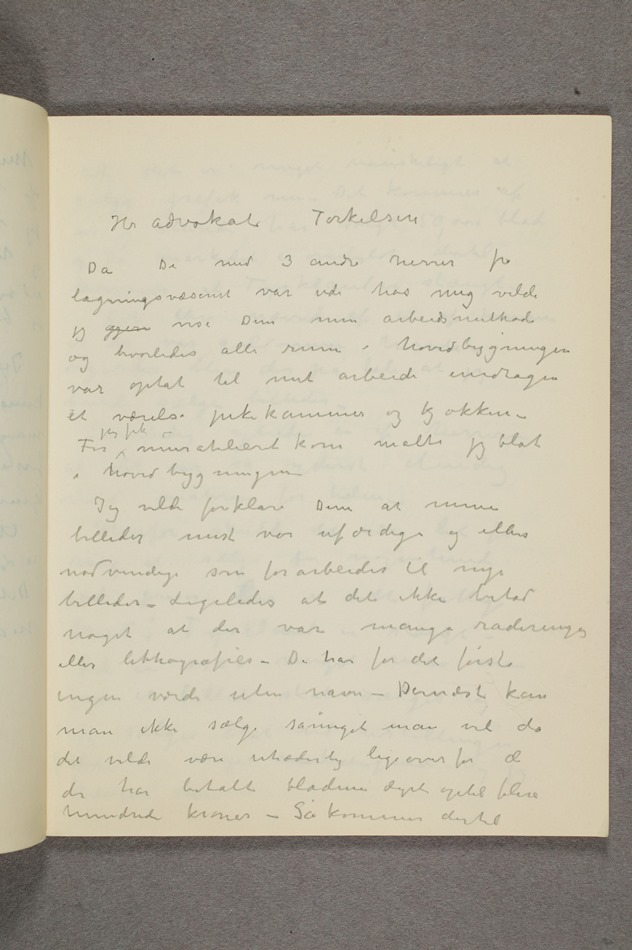 Hr advokat Torkelsen
Da De med 3 andre herrer fra
ligningsvæsenet var ude hos mig vilde
jeg gjern vise Dem min arbeidsmethode
og hvorledes alle rum i hovedbygningen
var optat til mit arbeide undtagen
et værelse pikekammer og kjøkken –
Før jeg fik murateliéret kom malte jeg blot
i hovedbygningen
Jeg vilde forklare Dem at mine
billeder mest var uferdige og ellers
nødvendige som forarbeider til nye
billeder – Ligeledes at det ikke betød
noget at der var mange raderinger
eller lithografier – De har for det første
ingen værdi uten navn – Dernæst kan
man ikke sælge såmeget man vil da
det vilde være uhæderlig ligeoverfor
de har betalt bladene dyrt optil flere
hundrede kroner – Så kommer dertil